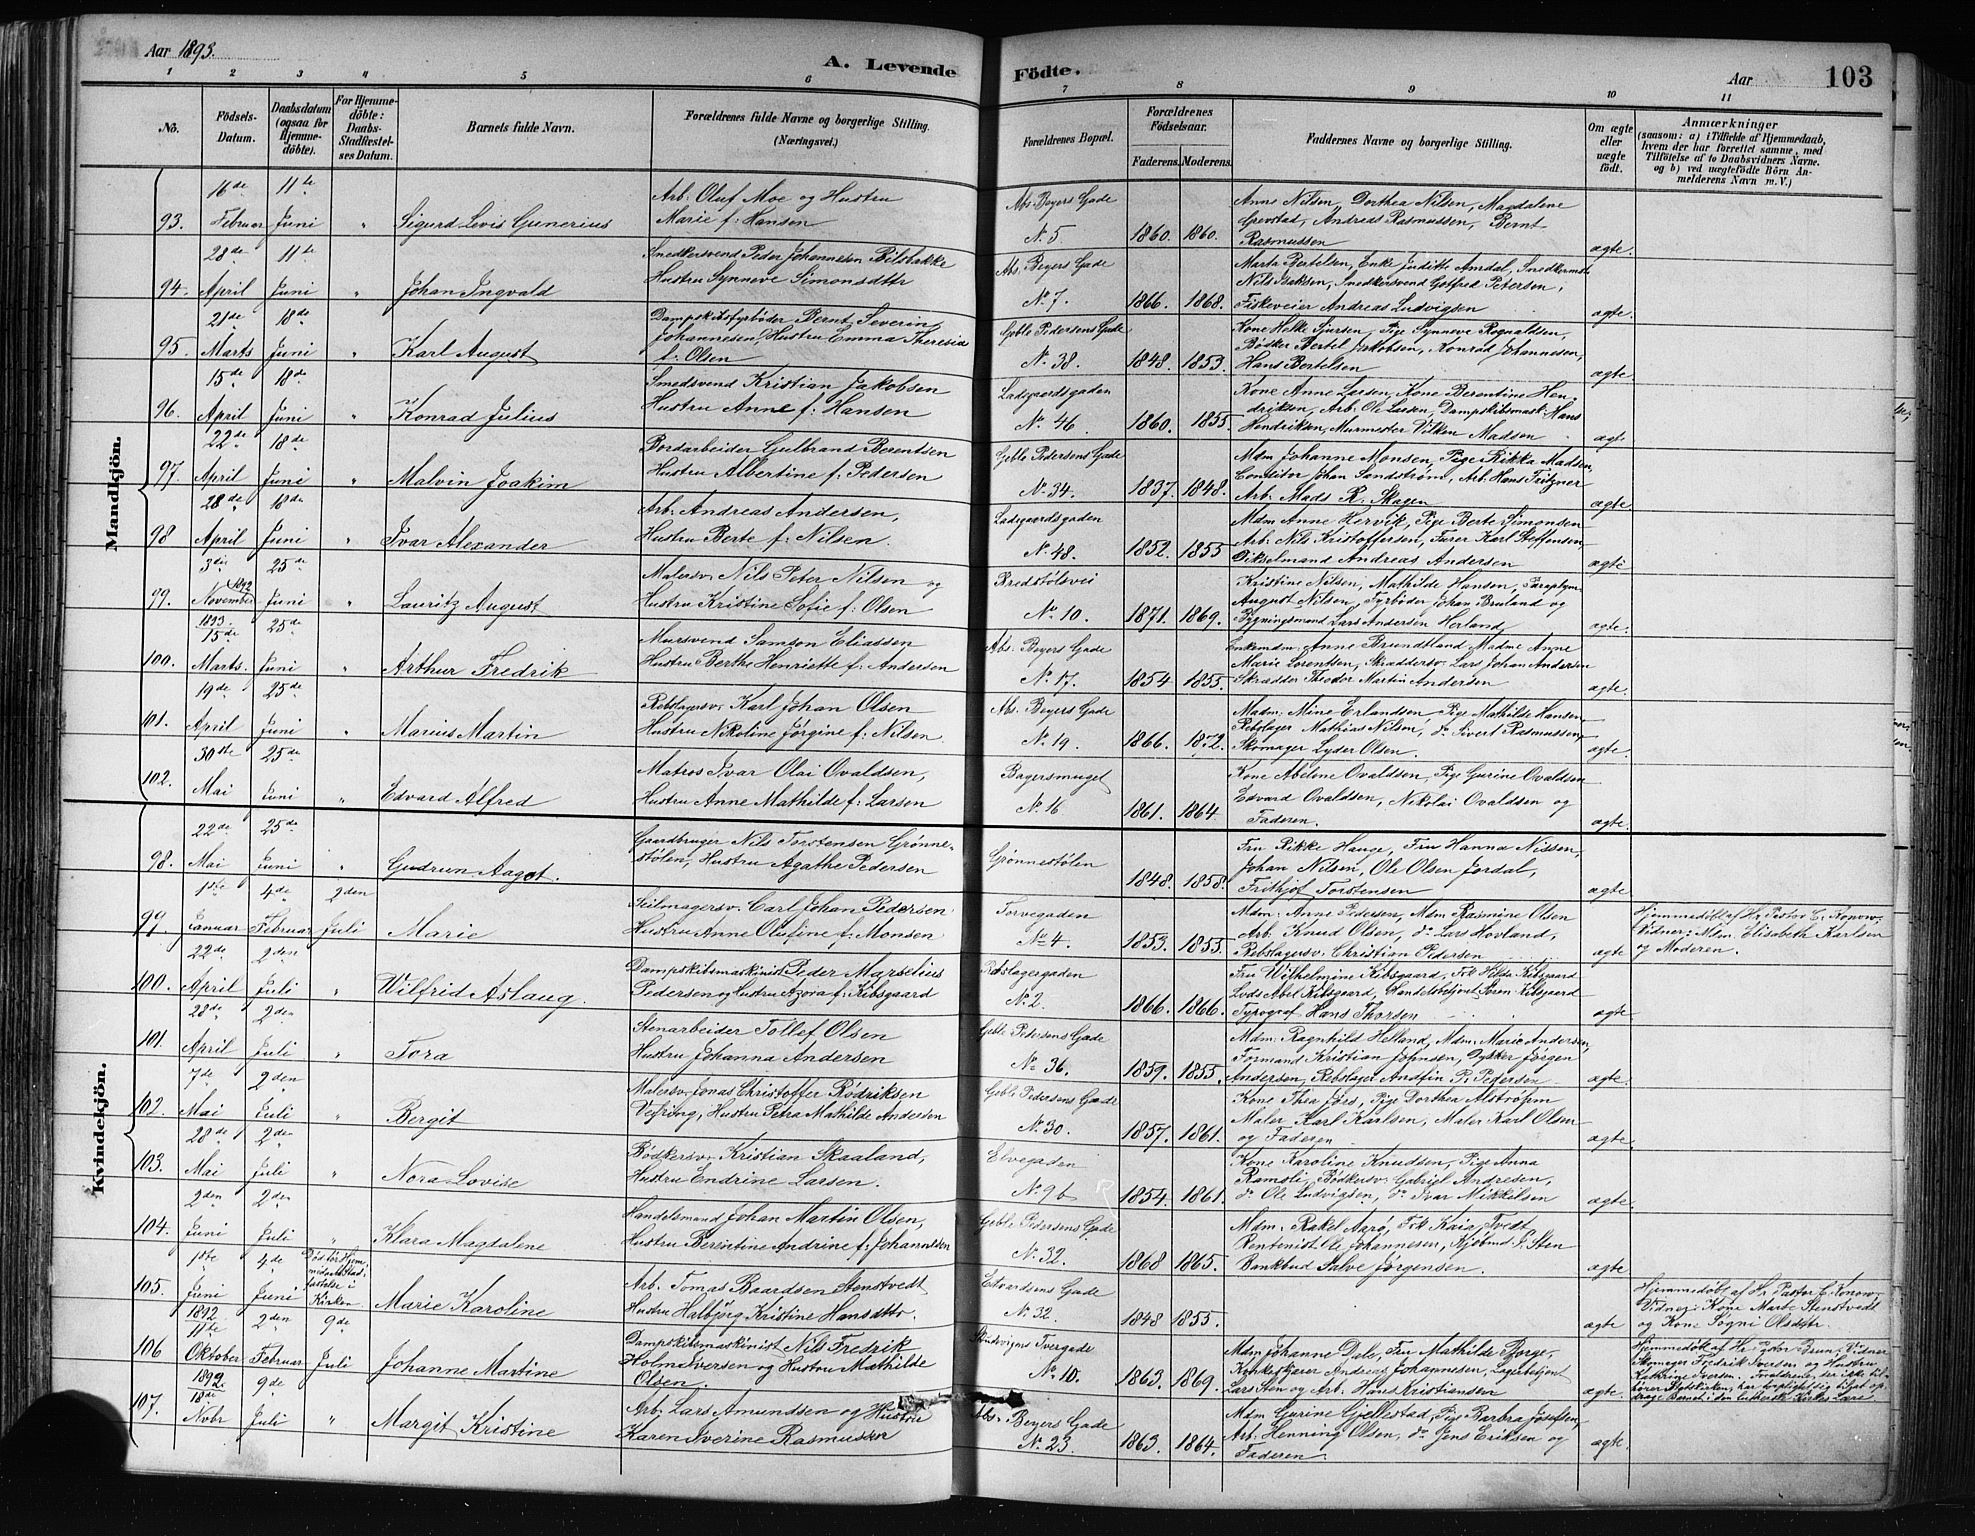 Aar 1893.
A. Levende Födte.
Aar 103
1 2 3 4 5 6 7 8 9 10 11
No.
Födsels-
Datum.
Daabsdatum
(ogsaa for
Hjemme-
döbte).
For Hjemme-
döbte:
Daabs-
Stadfæstel-
ses Datum.
Barnets fulde Navn.
Forældrenes fulde Navne og borgerlige Stilling.
(Næringsvei.)
Forældrenes Bopæl.
Forældrenes
Födselsaar.
Faderens. Moderens.
Faddernes Navne og borgerlige Stilling.
Om ægte
eller
uægte
födt.
Anmærkninger
(saasom: a) i Tilfælde af Hjemmedaab,
hvem der har forrettet samme, med
Tilföielse af to Daabsvidners Navne.
og b) ved uægtefödte Börn An-
melderens Navn m. V.)
Mandkjön.
16de 11te Arb: Oluf Moe og Hustru Abs. Beyers Gade Anns Nilsen, Dorthea Nilsen, Magdalene
93. Februar Juni " Sigurd Levis Gunerius Marie f: Hansen No 5. 1860. 1860. Grevstad, Andreas Rasmussen, Bernt
Rasmussen ægte.
28de 11te Snedkersvend Peder Johannesen Bilstakke Abs. Beyers Gade Marta Bertelsen, Enke Juditte Amdal, Snedkermst
94. April Juni " Johan Ingvald Hustru Synneve Simonsdttr No 7. 1866. 1868. Nils Isaksen, Snedkersvend Gotfred Petersen,
Fiskeveier Andreas Ludvigsen ægte.
21de 18de Dampskibsfyrbøder Bernt Severin Geble Pedersens Gade Kone Helke Sjursen, Pige Synneve Rognaldsen,
95. Marts Juni " Karl August Johannesen, Hustru Emma Theresia No 38. 1848. 1853. Bødker Bertel Jakobsen, Konrad Johannesen,
f: Olsen Hans Bertelsen ægte.
15de 18de Smedsvend Kristian Jakobsen Ladegaardsgaden Kone Anne Larsen, Kone Berentine Hen-
96. April Juni " Konrad Julius Hustru Anne f: Hansen No 46. 1860. 1855. driksen, Arb: Ole Larsen, Dampskibsmast: Hans
Hendriksen, Murmester Vilken Madsen ægte
22de 18de Bordarbeider Gulbrand Berentsen Geble Pedersens Gade Mdm Johanne Monsen, Pige Rikka Madsen,
97. April Juni " Malvin Joakim Hustru Albertine f: Pedersen No 34. 1837. 1848. Conditor Johan Sandstrøm, Arb: Hans Fritzner
Arb: Mads R. Skagen ægte
28de 18de Arb: Andreas Andersen, Ladegaardsgaden Mdm Anne Hervik, Pige Berte Simonsen
98 April Juni " Ivar Alexander Hustru Berte f: Nilsen. No 48. 1852. 1853 Arb: Nils Kristoffersen, Furer Karl Steffensen,
Dikselmand Andreas Andersen ægte
3die 1892 25de Malersv: Nils Peter Nilsen og Bredstølsvei Kristine Nilsen, Mathilde Hansen,
99. November Juni " Lauritz August Hustru Kristine Sofie f: Olsen No 10. 1871. 1869. August Nilsen, Fyrbøder Johan Bruland og
Bygningsmand Lars Andersen Herland ægte.
1893. 15de 25de Mursvend Samson Eliassen Abs. Beyers Gade Enkemdm: Anne Brundtland Madme Anne
100. Marts. Juni " Arthur Fredrik Hustru Berthe Henriette f: Andersen No 17. 1854 1855. Marie Lorentsen, Skræddersv: Lars Johan Andersen
Skrædder Theodor Martin Andersen ægte.
19de 25de Rebslagersv: Karl Johan Olsen Abs. Beyers Gade Madm: Mine Erlandsen, Pige Mathilde Hansen,
101. April Juni " Marius Martin Hustru Nikoline Jörgine f: Nilsen. No 19. 1866. 1872. Rebslager Mathias Nilsen, do Sivert Rasmussen,
Skomager Lyder Olsen. ægte.
30te 25de Matros Ivar Olai Ovaldsen, Bagersmuget Kone Abelone Ovaldsen, Pige Gurine Ovaldsen
102. Mai Juni " Edvard Alfred Hustru Anne Mathilde f: Larsen No 16 1861. 1864 Edvard Ovaldsen, Nikolai Ovaldsen og
Faderen. ægte.
Kvindekjön.
22de 25de Gaardbruger Nils Torstensen Grønne- Grønnestølen Fru Rikke Hauge, Fru Hanna Nissen,
98. Mai Juni " Gudrun Aagot. stølen, Hustru Agathe Pedersen 1848. 1858. Johan Nilsen, Ole Olsen Jordal,
Frithjof Torstensen ægte
1ste 4de 2den Seilmagersv. Carl Johan Pedersen Torvegaden Mdm: Anne Pedersen, Mdm Rasmine Olsen Hjemmedøbt af Hr. Pastor C. Konow.
99. Januar Februar Juli Marie Hustru Anne Olufine f: Monsen No 4. 1853. 1855. Arb: Knud Olsen, do Lars Hovland, Vidner: Mdm. Elisabeth Karlsen
Rebslagersv: Christian Pedersen ægte og Moderen.
22de 2den Dampskibsmaskinist Peder Marselius Rebslagergaden Fru Wilhelmine Kibsgaard, Frk Hilda Kibsgaard
100. April Juli " Wilfrid Aslaug. Pedersen og Hustru Azora f: Kibsgaard No 2. 1866. 1866. Lods Abel Kibsgaard, Handelsbetjent Søren Kibsgaard
Typograf Hans Thorsen ægte
28de 2den Stenarbeider Tollef Olsen Geble Pedersens Gade Mdm: Ragnhild Helland, Mdm: Marie Andersen,
101. April Juli " Tora Hustru Johanna Andersen No 36. 1859. 1855. Formand Kristian Johnsen, Dykker Jørgen
Andersen, Rebslager Andfin P. Pedersen ægte.
7de 2den Malersv: Jonas Christoffer Rödriksen Geble Pedersens Gade Kone Thea Jørs, Pige Dorthea Alstrøpm
102. Mai Juli " Bergit Vefring, Hustru Petra Mathilde Andersen No 30. 1857. 1861. Maler Karl Karlsen, Maler Karl Olsen
og Faderen ægte.
28de 2den Bødkersv: Kristian Skaaland, Elvegaden Kone Karoline Knudsen, Pige Anna
103. Mai Juli " Nora Lovise Hustru Endrine Larsen. No 9b 1854. 1861. Ramsli, Bødkersv: Gabriel Andresen,
do Ole Ludvigsen, do Ivar Mikkelsen ægte
2den 2den Handelsmand Johan Martin Olsen, Geble Pedersens Gade Mdm: Rakel Agrø, Frk Kaia Tvedt
104. Juni Juli " Klara Magdalene Hustru Berentine Andrine f: Johannesen No 32. 1868 1865. Rentenist Ole Johannesen, Kjøbmd P. Sten
Bankbud Salve Jørgensen. ægte
1ste 4de Død før Hjem-
medaabs Stad-
fæstelse i
Kirken Arb. Tomas Baardsen Stenstvedt Edvardsens Gade Hjemmedøbt af Hr Pastor C. Konow.
105. Juni Juni Marie Karoline Hustru Halbjørg Kristine Hansdttr. No 32. 1848 1855. Vidner: Kone Marte Stenstvedt
ægte og Kone Søgni Olsdttr.
1892 11te 2den 9de Dampskibsmaskinist Nils Fredrik Skudevigens Tvergade Mdm Johanne Dale, Fru Mathilde Borge, Hjemmedøbt af Hr Pastor Brun. Vidner
106 Oktober Februar Juli Johanne Martine Holm Iversen og Hustru Mathilde No 10. 1863. 1869. Andreas Johannesen, Lagerbetjent Skomager Fredrik Iversen og Hustru
Olsen. Lars Sten og Arb: Hans Kristiansen ægte Kathrine Iversen. Forældrene, der ikke til-
hører Statskirken, har
drage Barnet i den lutherske Kirkes Lære.
1892 18de 9de Arb: Lars Amundsen og Hustru Abs. Beyers Gade Mdm Gurine Gjellestad, Pige Barbra Josefsen,
107. Novbr Juli " Margit Kristine Karen Iverine Rasmussen No 23. 1863. 1864. Arb: Henning Olsen, do Jens Eriksen og
Faderen. ægte.